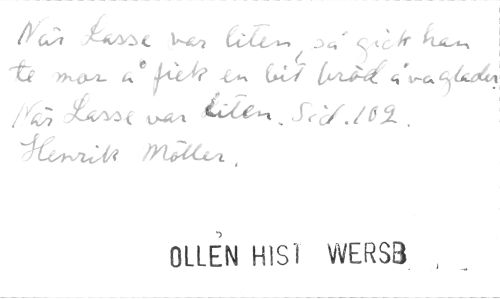 När Lasse var liten, så gick han
te mor å fick en bit bröd å va glader.
När Lasse var liten. Sid. 102.
Henrik Möller.
OLLÉN HIST WERSB